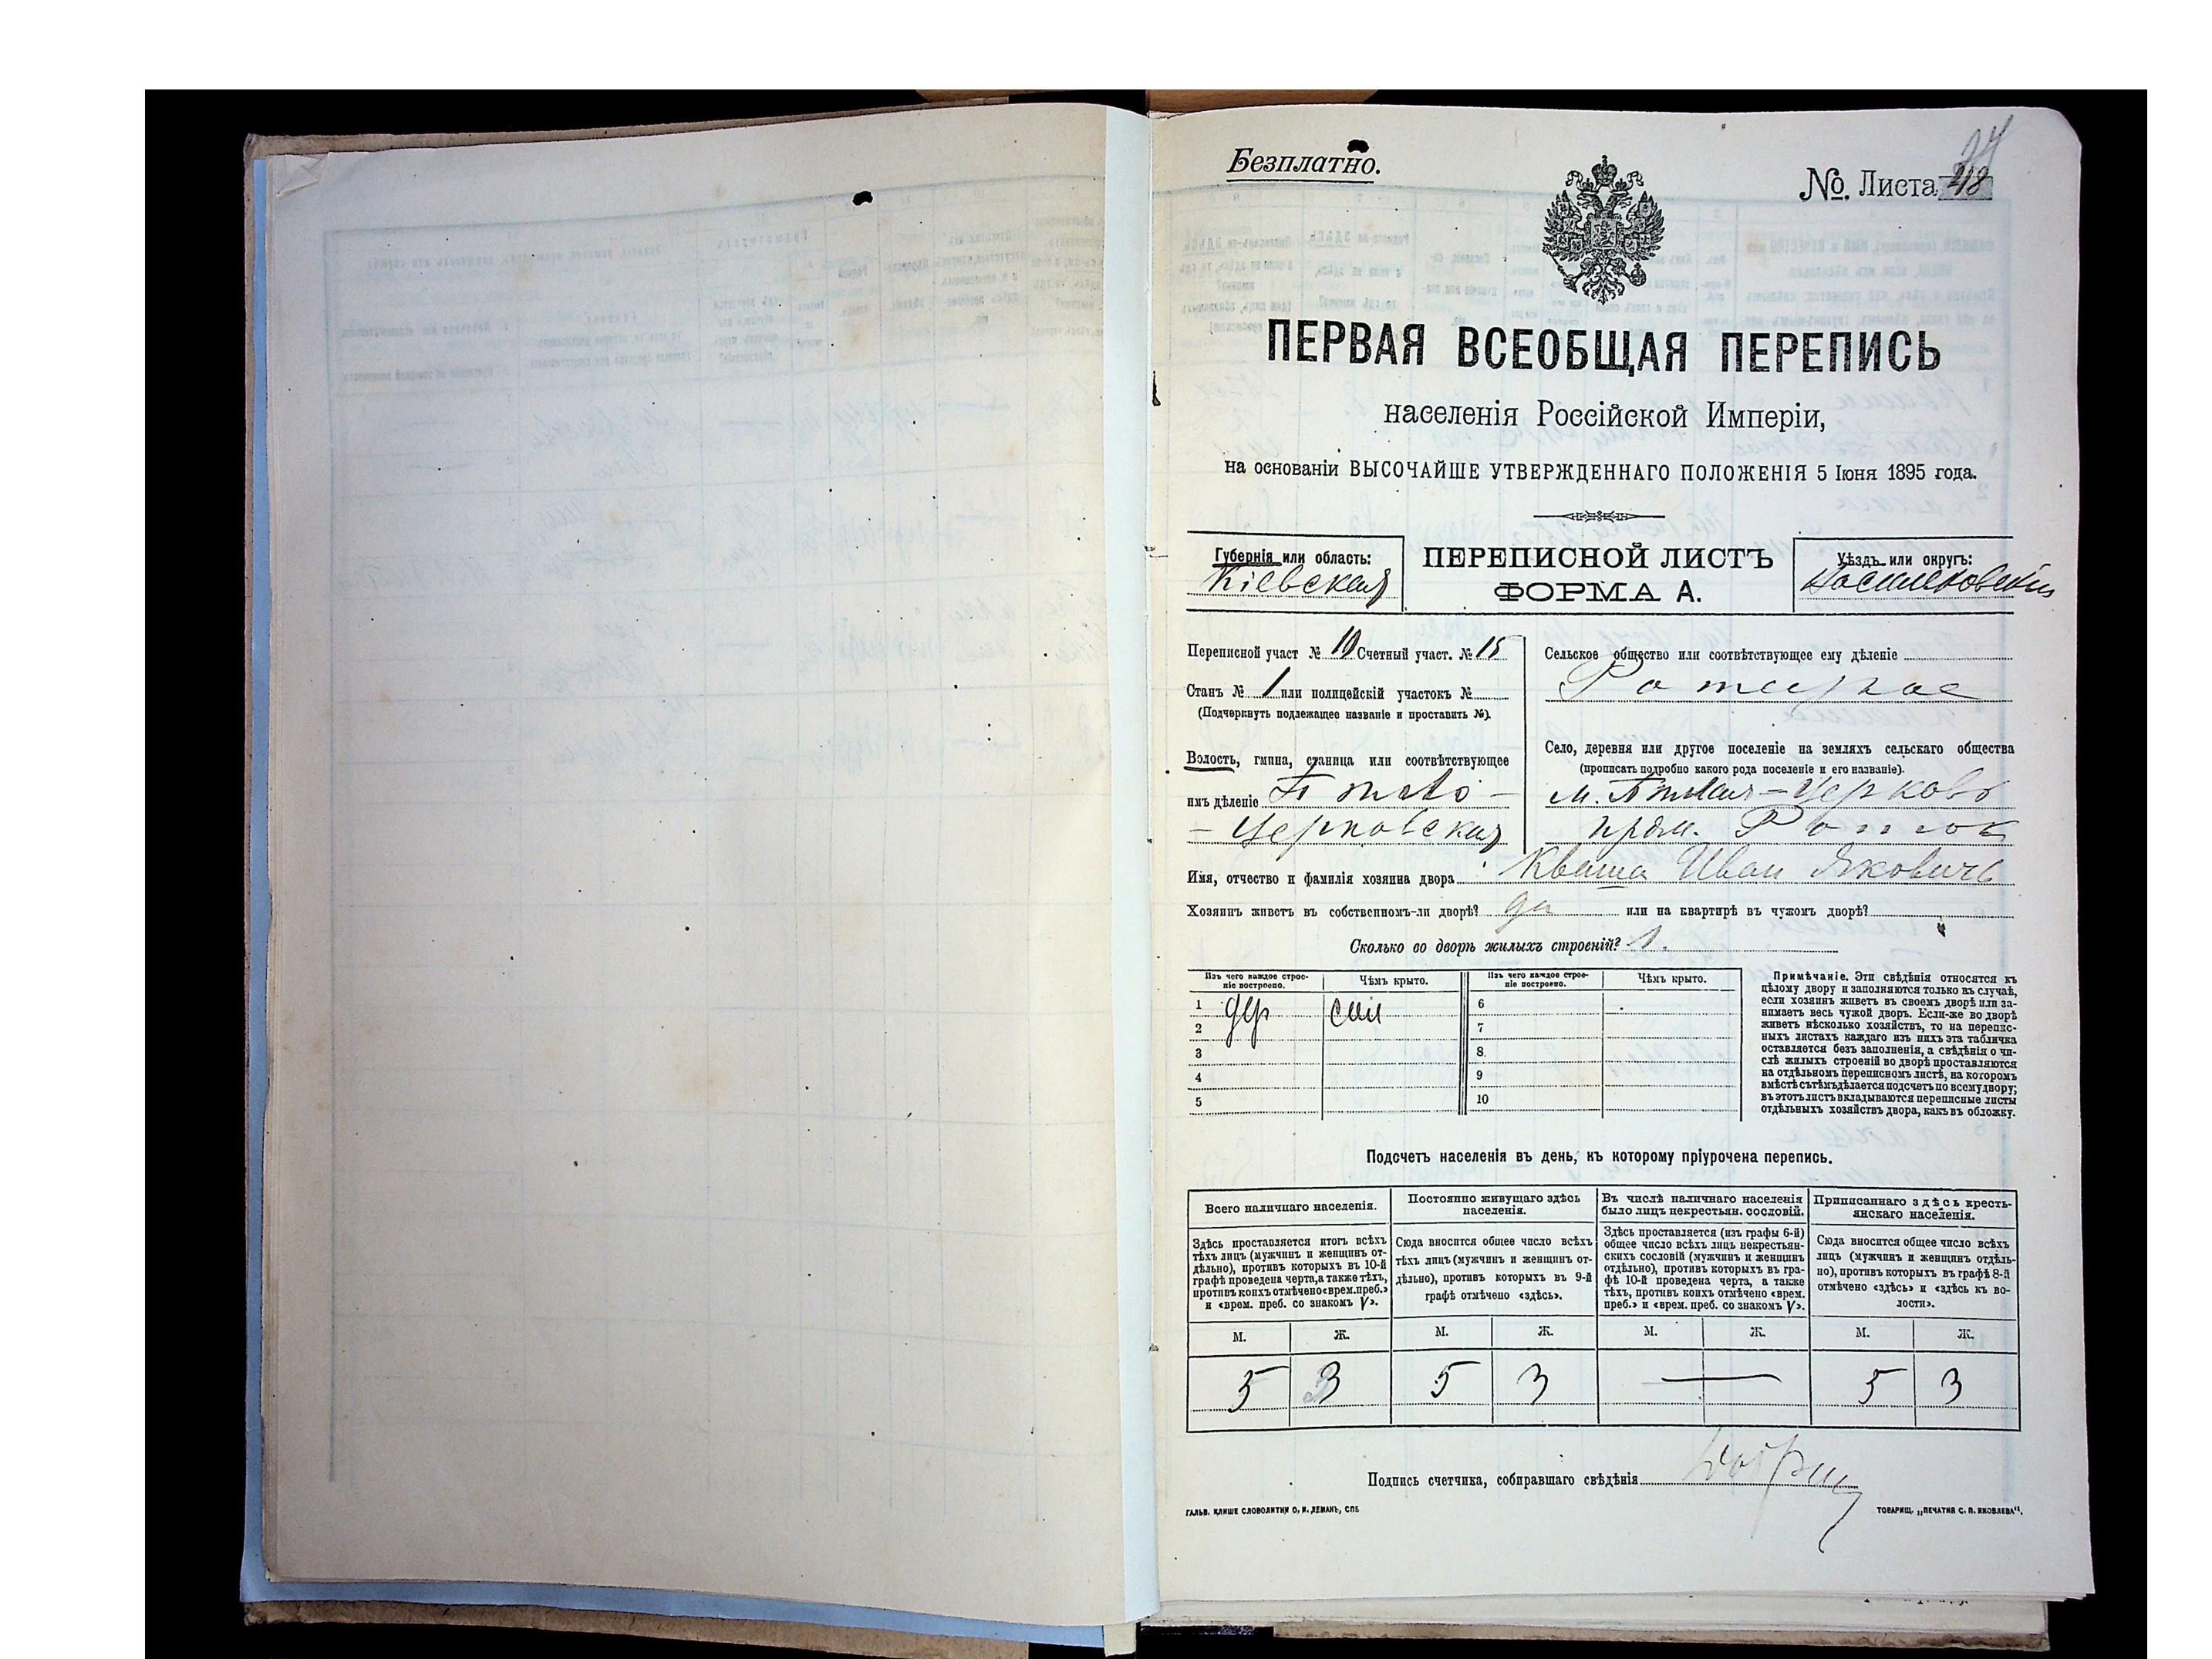 Безплатно.
№ Листа 48
ПЕРВАЯ ВСЕОБЩАЯ ПЕРЕПИСЬ
населенія Россійской Имперіи,
на основаніи ВЫСОЧАЙШЕ УТВЕРЖДЕННАГО ПОЛОЖЕНІЯ 5 Іюня 1895 года.
Губернія или область:
Кіевская
ПЕРЕПИСНОЙ ЛИСТЪ
ФОРМА А.
Уѣздъ или округъ:
Васильковскій
Переписной участ № 19 Счетный участ. № 15
Станъ № 1 или полицейскій участокъ №
(Подчеркнуть подлежащее названіе и проставить №).
Волость, гмина, станица или соотвѣтствующее
имъ дѣленіе Бѣло-
-Церковская
Сельское общество или соотвѣтствующее ему дѣленіе
Село, деревня или другое поселеніе на земляхъ сельскаго общества
(прописать подробно какого рода поселеніе и его названіе).
м. Бѣлая-Церковь
Имя, отчество и фамилія хозяина двора Кваша Иван Яковичъ
Хозяинъ живетъ въ собственномъ-ли дворѣ? да или на квартирѣ въ чужомъ дворѣ?
Сколько во дворѣ жилыхъ строеній? 1.
Изъ чего каждое строе-
ніе построено.
Чѣмъ крыто.
Изъ чего каждое строе-
ніе построено.
Чѣмъ крыто.
1 дер 6
2 7
3 8.
4 9
5 10
Примѣчаніе. Эти свѣдѣнія относятся къ
цѣлому двору и заполняются только въ случаѣ,
если хозяинъ живетъ въ своемъ дворѣ или за-
нимаетъ весь чужой дворъ. Если-же во дворѣ
живетъ нѣсколько хозяйствъ, то на перепис-
ныхъ листахъ каждаго изъ нихъ эта табличка
оставляется безъ заполненія, а свѣдѣнія о чи-
слѣ жилыхъ строеній во дворѣ проставляются
на отдѣльномъ переписномъ листѣ, на которомъ
вмѣстѣ съ тѣмъ дѣлается подсчетъ по всему двору;
въ этотъ листъ вкладываются переписные листы
отдѣльныхъ хозяйствъ двора, какъ въ обложку.
Подсчетъ населенія въ день, къ которому пріурочена перепись.
Всего наличнаго населенія.
Здѣсь проставляется итогъ всѣхъ
тѣхъ лицъ (мужчинъ и женщинъ от-
дѣльно), противъ которыхъ въ 10-й
графѣ проведена черта, а также тѣхъ,
противъ коихъ отмѣчено «врем. преб.»
и «врем. преб. со знакомъ V».
Постоянно живущаго здѣсь
населенія.
Сюда вносится общее число всѣхъ
тѣхъ лицъ (мужчинъ и женщинъ от-
дѣльно), противъ которыхъ въ 9-й
графѣ отмѣчено «здѣсь».
Въ числѣ наличнаго населенія
было лицъ некрестьян. сословій.
Здѣсь проставляется (изъ графы 6-й)
общее число всѣхъ лицъ некрестьян-
скихъ сословій (мужчинъ и женщинъ
отдѣльно), противъ которыхъ въ гра-
фѣ 10-й проведена черта, а также
тѣхъ, противъ коихъ отмѣчено «врем.
преб.» и «врем. преб. со знакомъ V».
Приписаннаго здѣсь кресть-
янскаго населенія.
Сюда вносится общее число всѣхъ
лицъ (мужчинъ и женщинъ отдѣль-
но), противъ которыхъ въ графѣ 8-й
отмѣчено «здѣсь» и «здѣсь къ во-
лости».
М. Ж. М. Ж. М. Ж. М. Ж.
5 3 5 3 — 5 3
Подпись счетчика, собиравшаго свѣдѣнія
ГАЛЬВ. КЛИШЕ СЛОВОЛИТНИ О. И. ЛЕМАНЪ, СПБ
ТОВАРИЩ. „ПЕЧАТНЯ С. П. ЯКОВЛЕВА“.